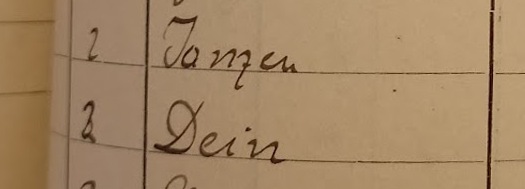 2 Janzen
3 Dein